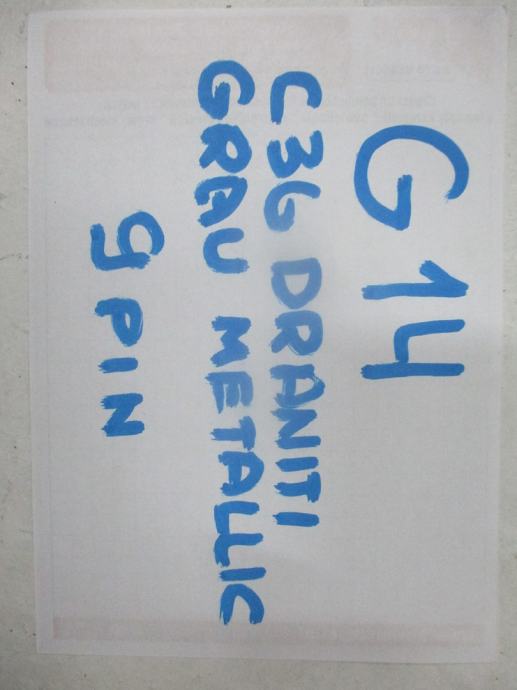 G14
C36 DRANITI
GRAU METALLIC
9 PIN